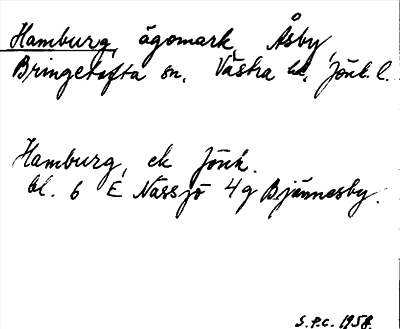 Hamburg, ägomark, Åsby,
Bringetofta sn, Västra hd, Jönk. l.
Hamburg, ek Jönk.
bl. 6 E Nässjö 4g Bjännesby.
S.P.C. 1958.